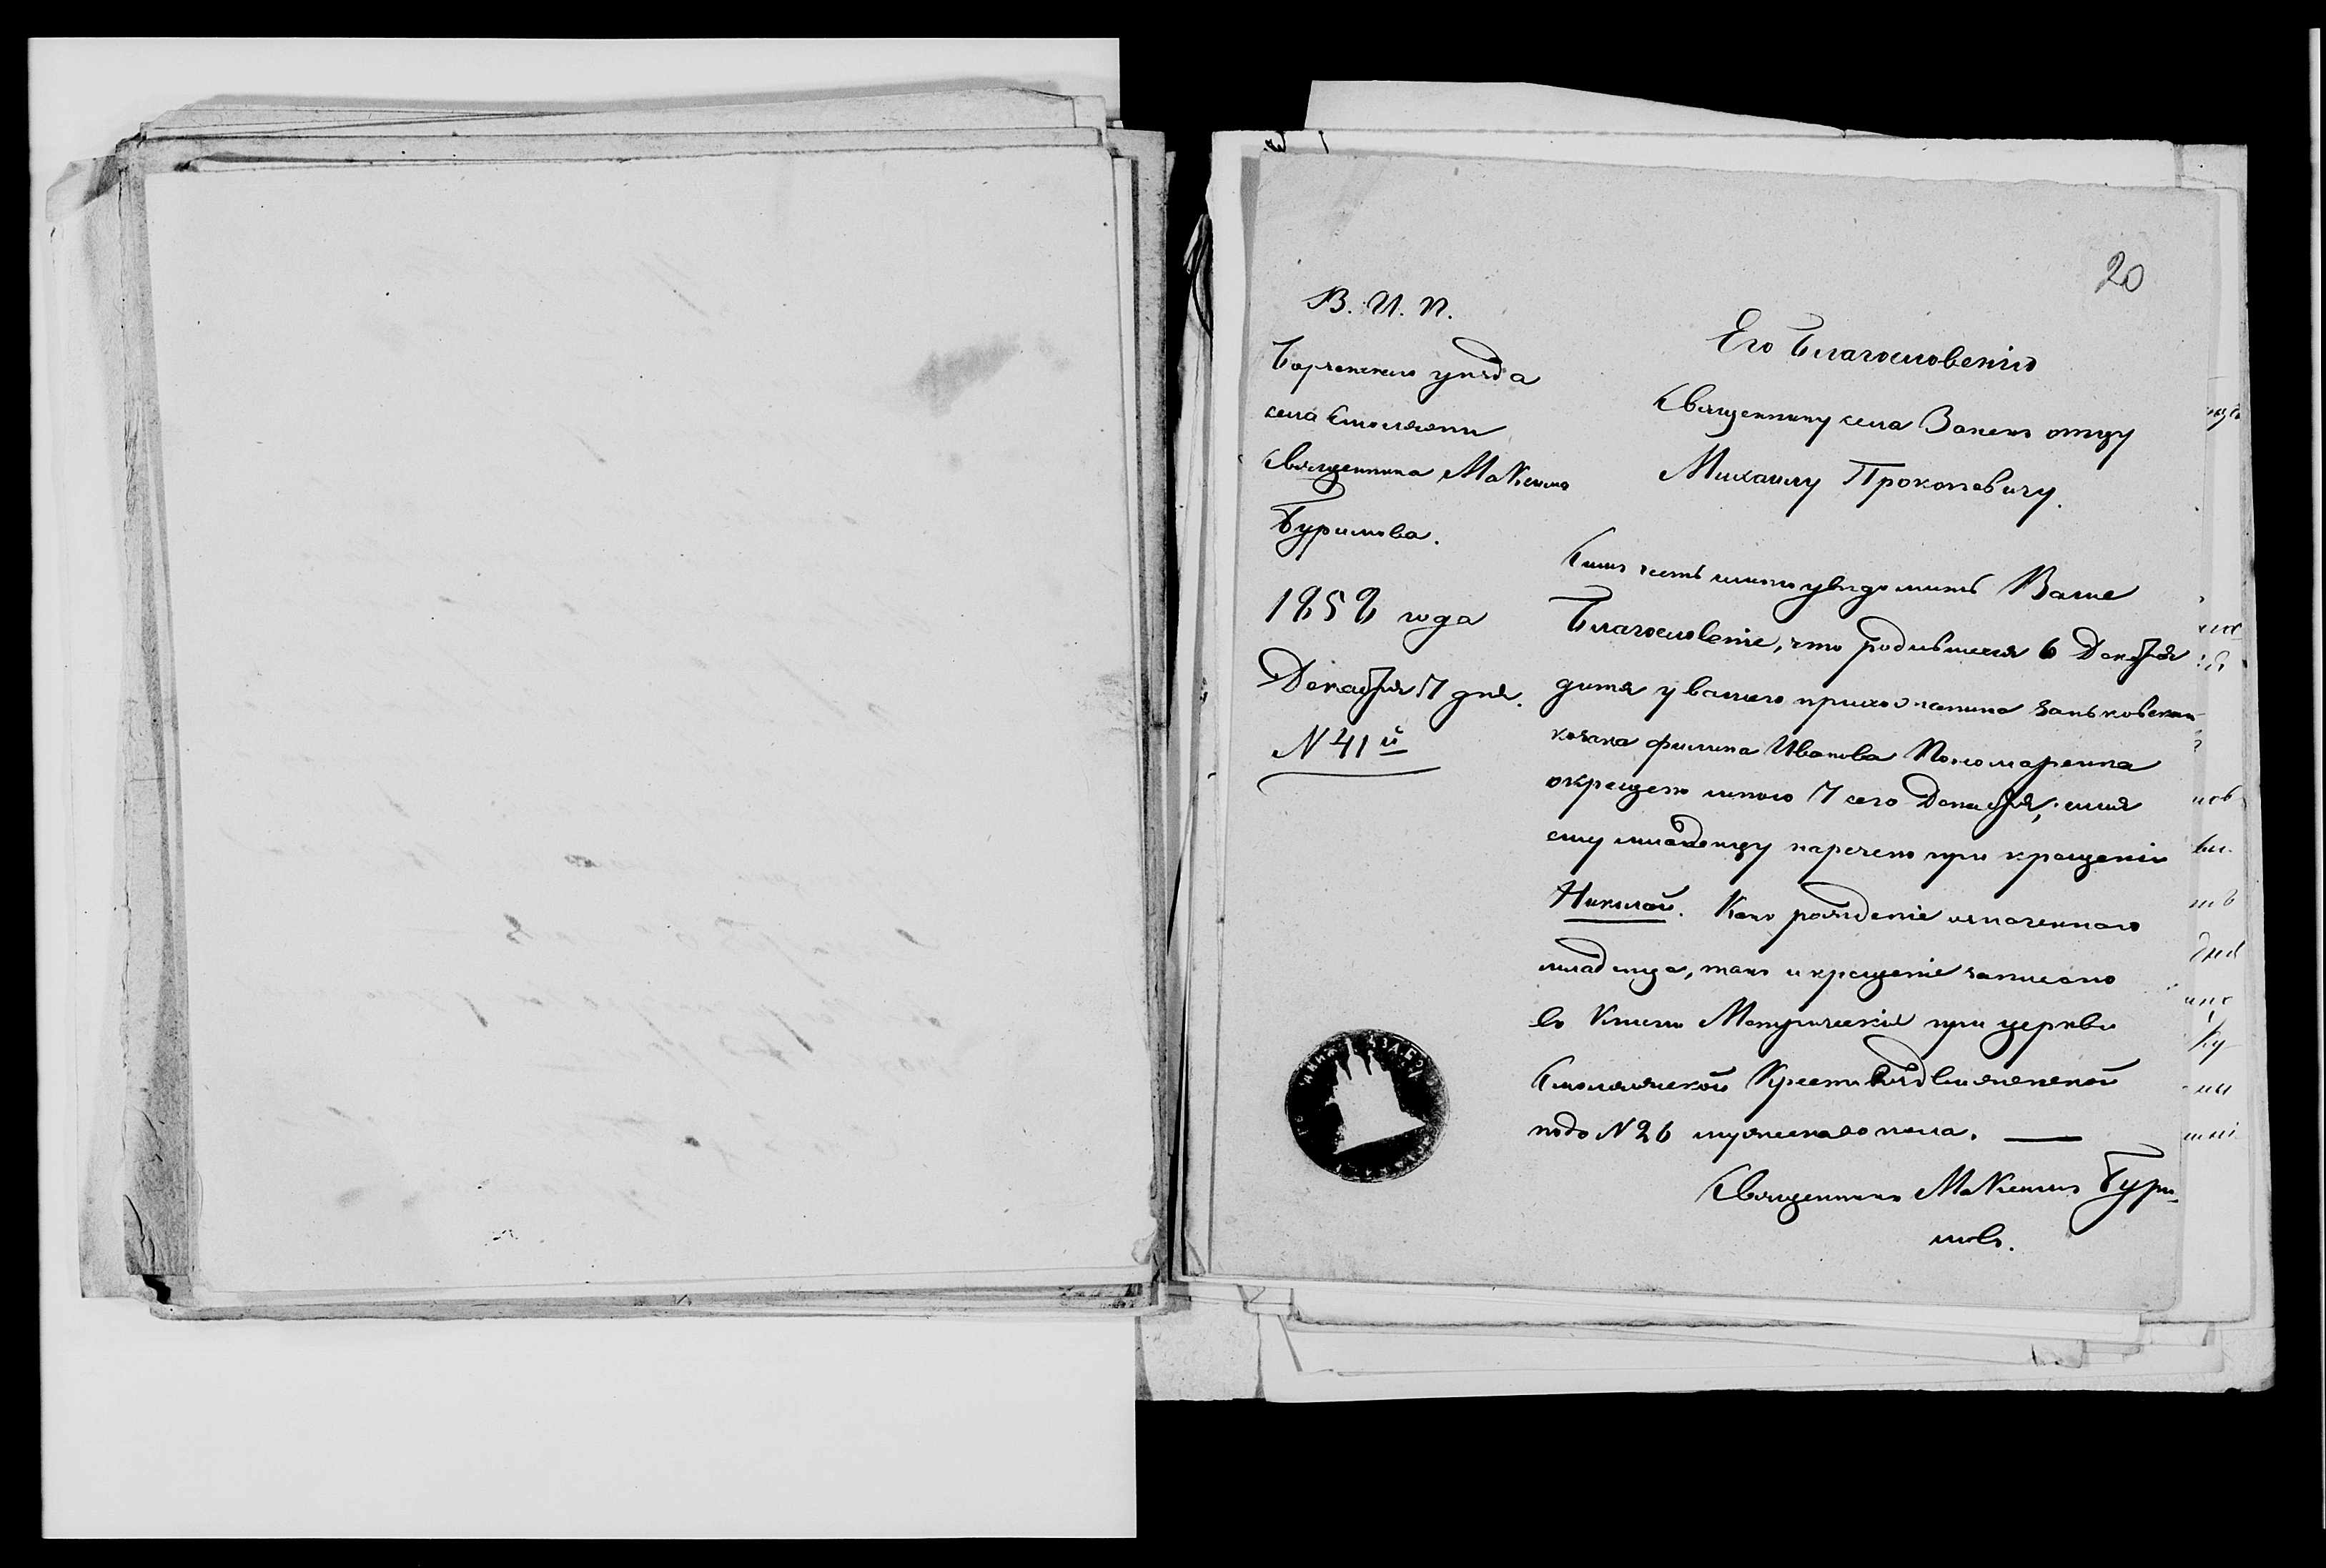 20
В. И. П.
Борзенскаго уѣзда
села Смоляжи
Священника Максима
Буримова.
1858 года
Декабря 7 дня.
N 41й
Его Благословенію
Священнику села Занекъ отцу
Михаилу Прокоповичу.
Симъ честь имѣю увѣдомить Ваше
Благословеніе, что родившееся 6 Декабря
дитя у вашего прихожанина Заньковскаго
козака Филипа Иванова Пономаренка
окрещено мною 7 сего Декабря, имя
ему младенцу наречено при крещеніи
Николай. Какъ рожденіе означеннаго
младенца, такъ и крещеніе записано
въ Книгѣ Метрической при церкви
Смоляжской Кресто Воздвиженской
подъ N 26 мужескаго пола.
Священникъ Максимъ Бури-
мовъ.